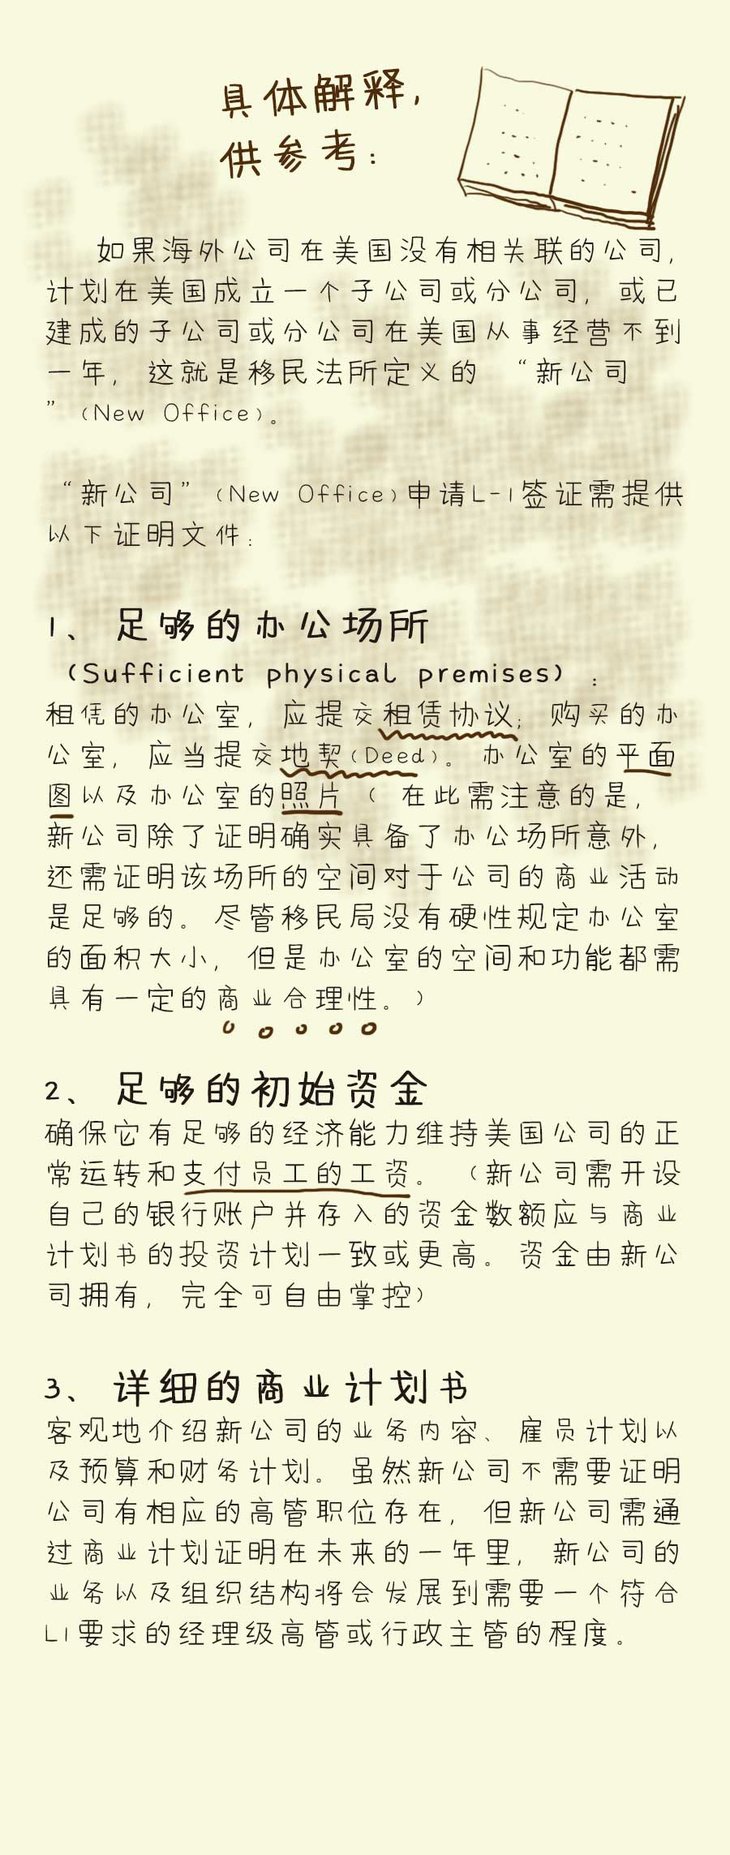 具体解释，
供参考：
如果海外公司在美国没有相关联的公司，
计划在美国成立一个子公司或分公司，或已
建成的子公司或分公司在美国从事经营不到
一年，这就是移民法所定义的 “新公司
”（New Office）。
“新公司”（New Office）申请L-1签证需提供
以下证明文件：
1、足够的办公场所
（Sufficient physical premises）：
租凭的办公室，应提交租赁协议；购买的办
公室，应当提交地契（Deed）。办公室的平面
图以及办公室的照片（ 在此需注意的是，
新公司除了证明确实具备了办公场所意外，
还需证明该场所的空间对于公司的商业活动
是足够的。尽管移民局没有硬性规定办公室
的面积大小，但是办公室的空间和功能都需
具有一定的商业合理性。）
2、足够的初始资金
确保它有足够的经济能力维持美国公司的正
常运转和支付员工的工资。（新公司需开设
自己的银行账户并存入的资金数额应与商业
计划书的投资计划一致或更高。资金由新公
司拥有，完全可自由掌控）
3、详细的商业计划书
客观地介绍新公司的业务内容、雇员计划以
及预算和财务计划。虽然新公司不需要证明
公司有相应的高管职位存在，但新公司需通
过商业计划证明在未来的一年里，新公司的
业务以及组织结构将会发展到需要一个符合
L1要求的经理级高管或行政主管的程度。